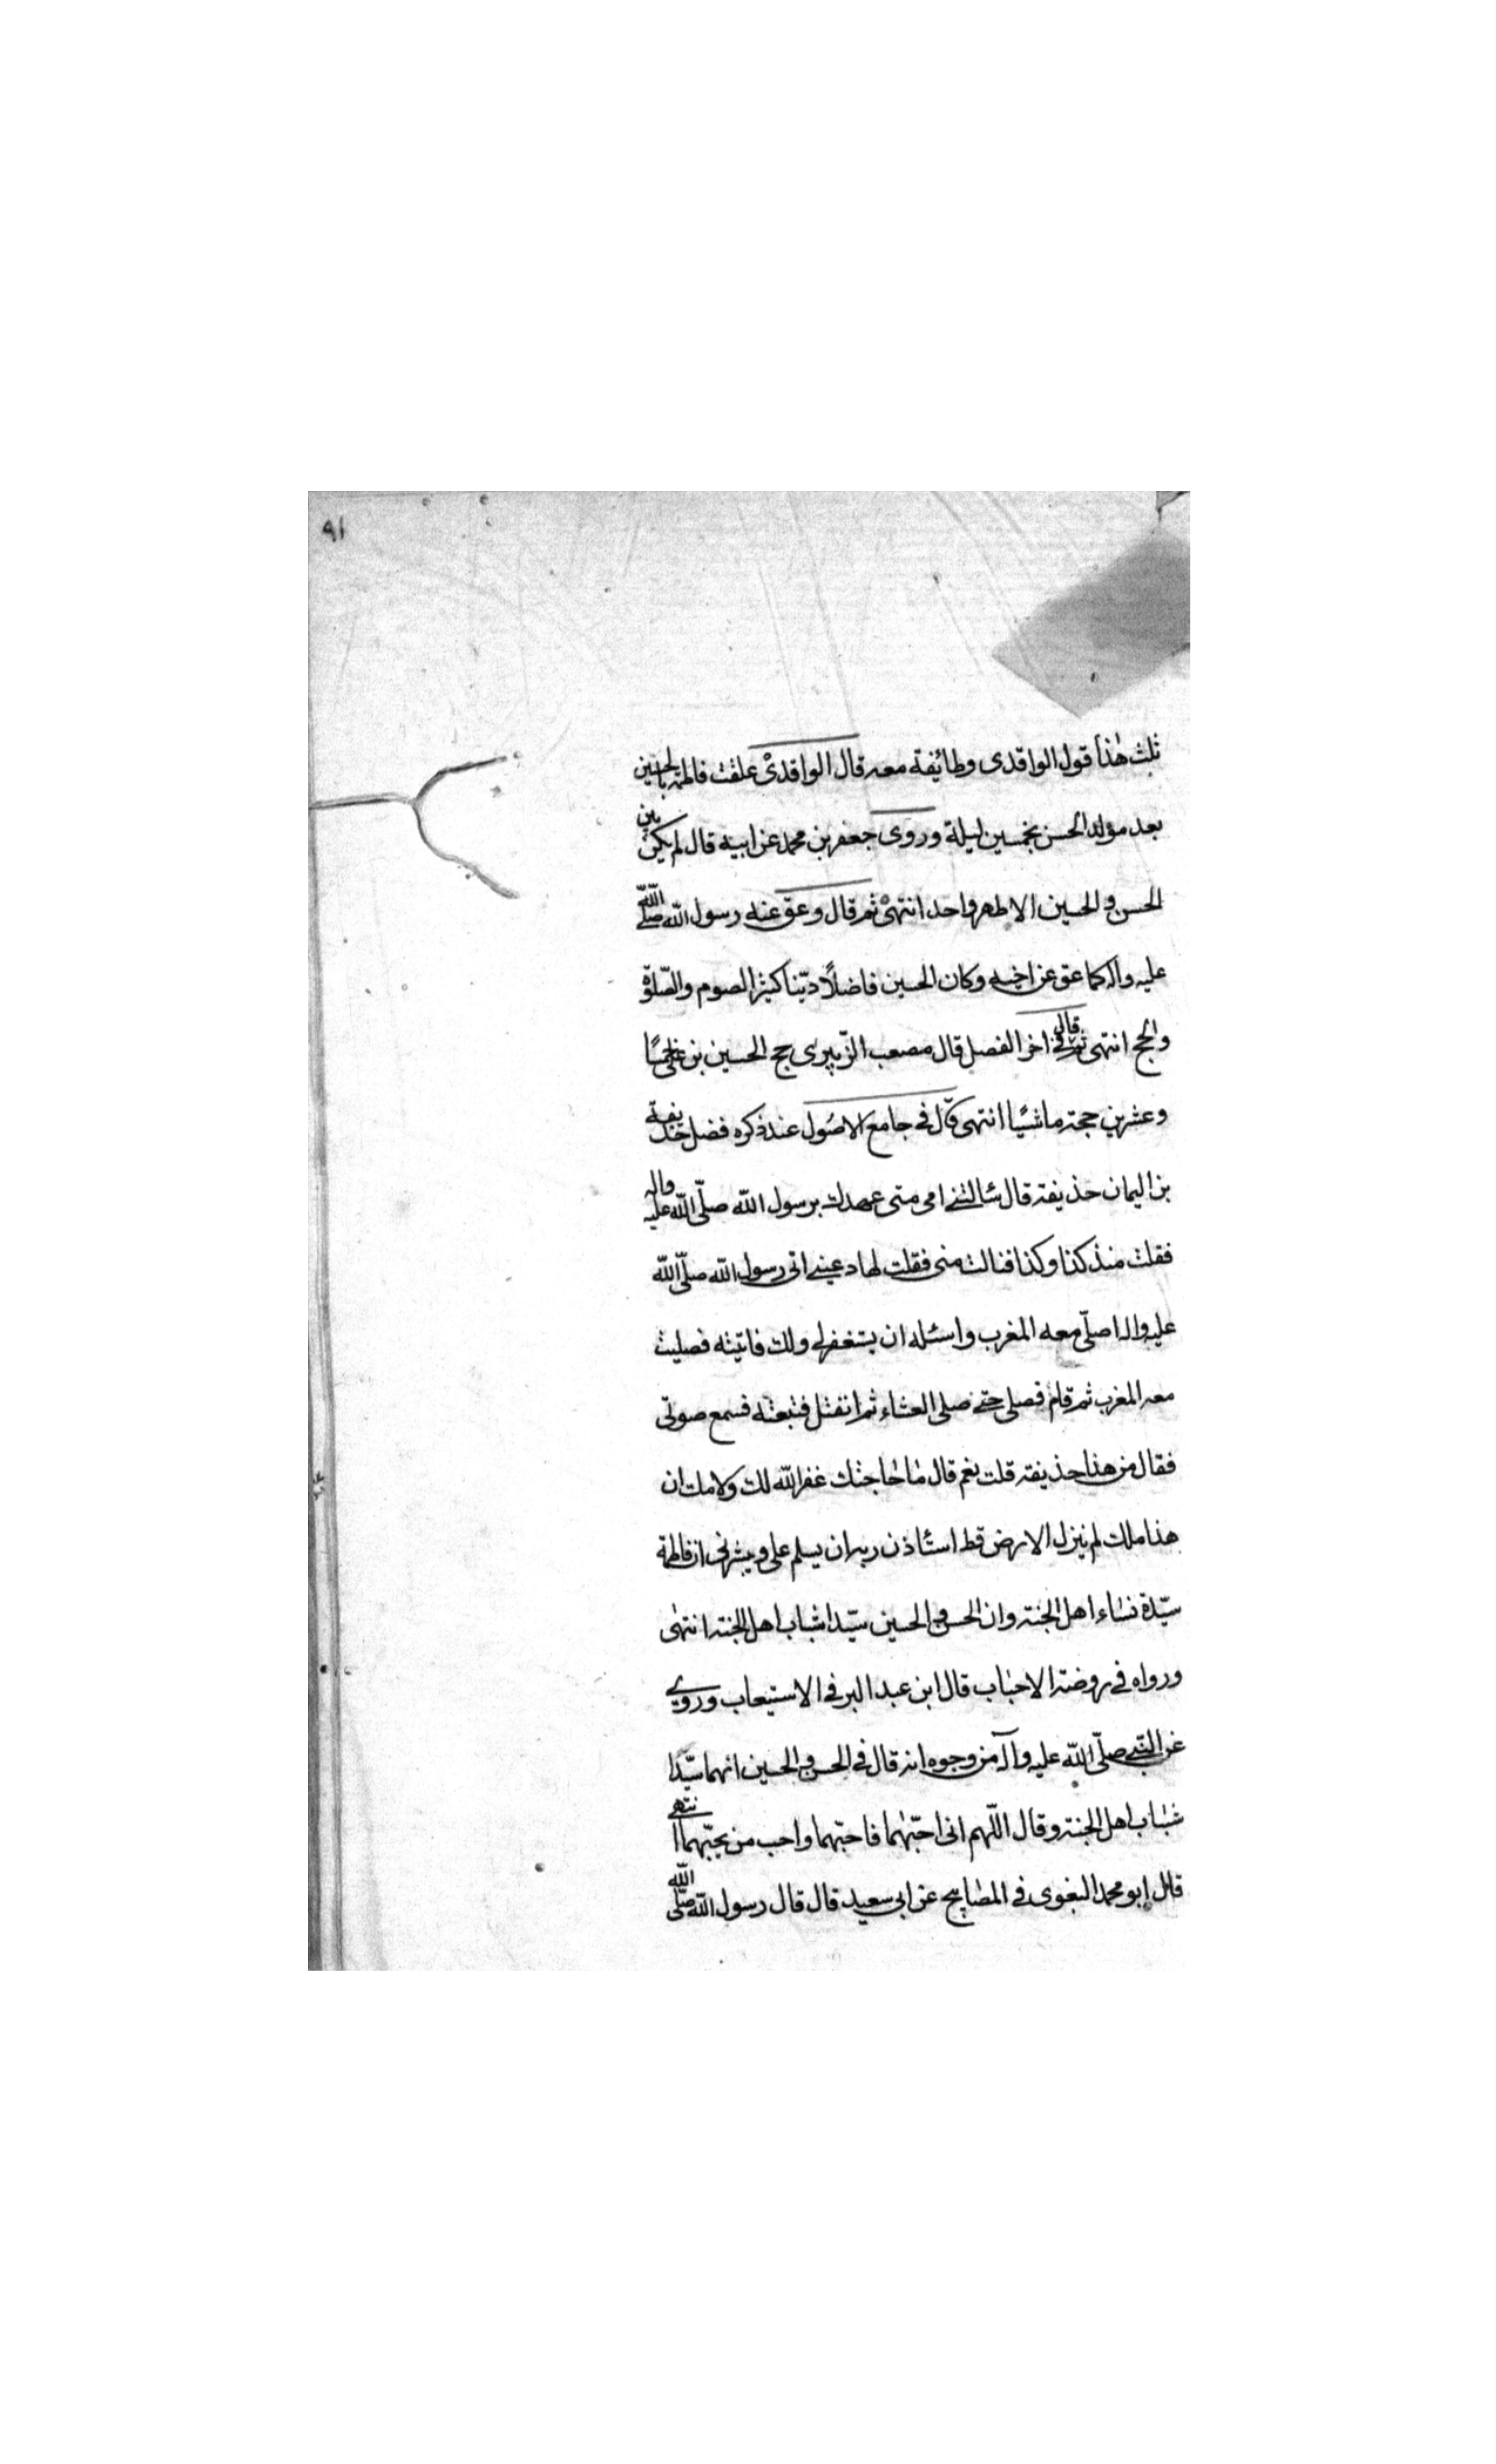 ٩١
ثلث هذا قول الواقدى وطائفة معه قال الواقدىّ علقت فاطمة بالحسين
بعد مولد الحسن بخمسين ليلة وروى جعفر بن محمد عن ابيه قال لم يكن بين
الحسن والحسين الا طهر واحد انتهىٰ ثم قال وعقّ عنه رسول اللّه صلّى اللّه
عليه واله كما عق عن اخيه وكان الحسين فاضلًا ديّنا كثير الصوم والصّلوة
والحج انتهى ثم قال فى اخر الفصل قال مصعب الزّبيرى حج الحسين بن على خمسًا
وعشرين حجة ماشيًا انتهى قال فى جامع الاصُول عند ذكره فضل حذيفة
بن اليمان حذيفة قال سَالتنى امى متى عهدك برسول اللّه صلّى اللّه عليه واله
فقلت منذ كذا وكذا فنالت منى فقلت لها دعينى اتى رسول اللّه صلّى اللّه
عليه واله اصلّى معه المغرب واسئله ان يستغفر لى ولك فاتيته فصليت
معه المغرب ثم قام فصلى حتى صلى العشاء ثم انفتل فتبعته فسمع صوتى
فقال من هذا حذيفة قلت نعم قال مٰا حٰاجتك غفر اللّه لك ولامك ان
هذا ملك لم ينزل الارض قط استٔاذن ربه ان يسلم على ويبشرنى ان فاطمة
سيّدة نسٰاء اهل الجنة وان الحسن والحسين سيّدا شباب اهل الجنة انتهٰى
ورواه فى روضة الاحبٰاب قال ابن عبد البر فى الاستيعاب وروى
عن النّبى صلّى اللّه عليه واله من وجوه انه قال فى الحسن والحسين انهما سيّدا
شبٰاب اهل الجنة وقال اللّهم انى احبّهٰما فاحبّهما واحب من يحبّهما انتهى
قال ابو محمد البغوى فى المصٰابيح عن ابى سعيد قال قال رسول اللّه صلّى اللّه